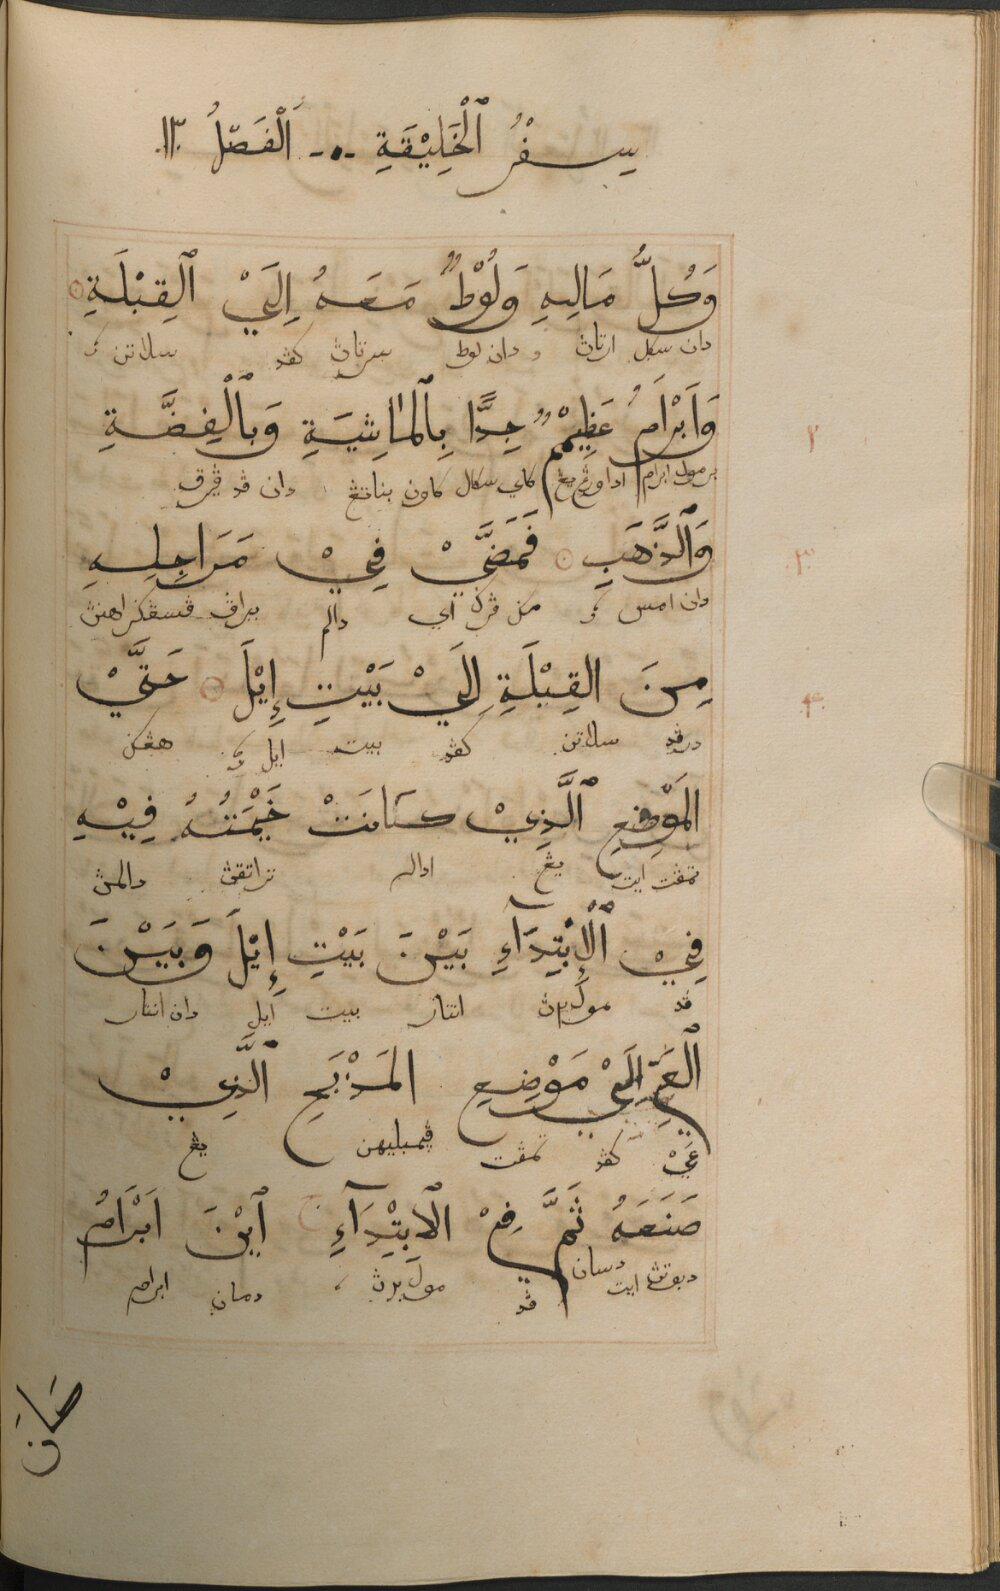 سِفْرُ ٱلْخَلِيْقَةِ ٱلْفَصْلُ ١٣
وَكُلُّ مَالِهِ وَلُوْطٌ مَعَهُ إِلَيْ ٱلقِبْلَةِ
دان سكل ارتاڽ دان لوط سرتاڽ كڤد سلاتن
وَاَبْرَامُ عَظِيْمٌ جِدًّا بِٱلْمَاشِيَةِ وَبِٱلْفِضَّةِ
٢
برمول ابرام اد اورڠ يڠ كاي سكالي كاون بناتڠ دان ڤد ڤيرق
وَٱلذَّهَبِ فَمَضَيْ فِيْ مَرَاحِلِهِ
٣
دان امس مك ڤركي اي دالم
مِنَ القِبْلَةِ اِلَيْ بَيْتِ إِيْلَ حَتَّيْ
٤
درڤد سلاتن كڤد بيت ايل هڠكن
المَوْضِعِ ٱلَّذِيْ كَانَتْ خَيْمَتُهُ فِيْهِ
تمڤت ايت يڠ اداله دالمڽ
فِيْ ٱلْاِبْتِدَآءِ بَيْنَ بَيْتِ إِيْلَ وَبَيْنَ
ڤد مولاڽ انتار بيت ايل دان انتار
ٱلْعَيِّ اِلَيْ مَوْضِعِ المَذْبَحِ ٱلَّذِيْ
عَيْ كڤد تمڤت ڤمبليهن يڠ
صَنَعَهُ ثَمَّ فِيْ ٱلْاِبْتِدَآءِ ٱيْنَ اَبْرَامُ
دبوتڽ ايت دسان ڤد دمان ابرام
كَانَ